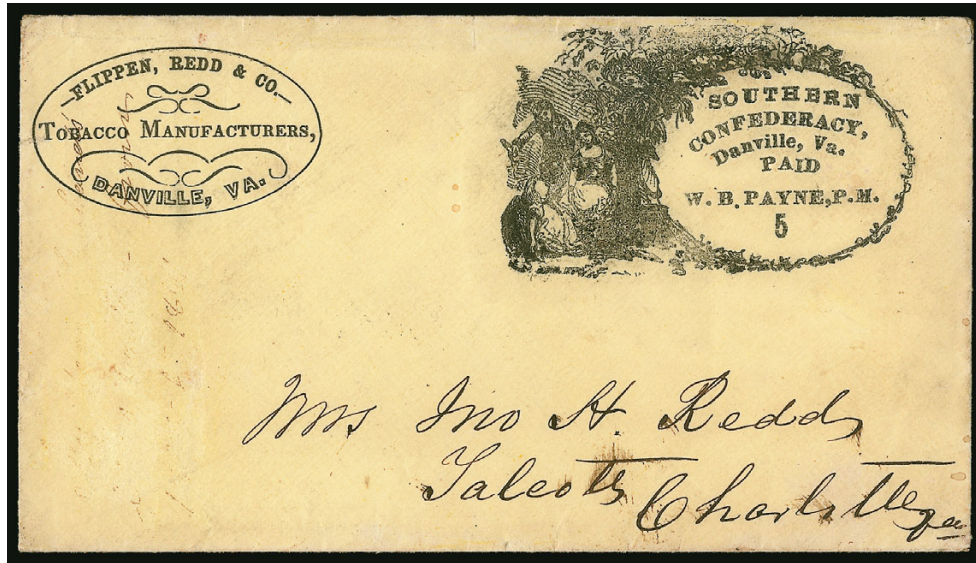 —FLIPPEN, REDD & CO.—
TOBACCO MANUFACTURERS,
DANVILLE, VA.
SOUTHERN
CONFEDERACY,
Danville, Va.
PAID
W. B. PAYNE, P. M.
5
Mrs Jno H. Redd
Talcotts
Charlotte